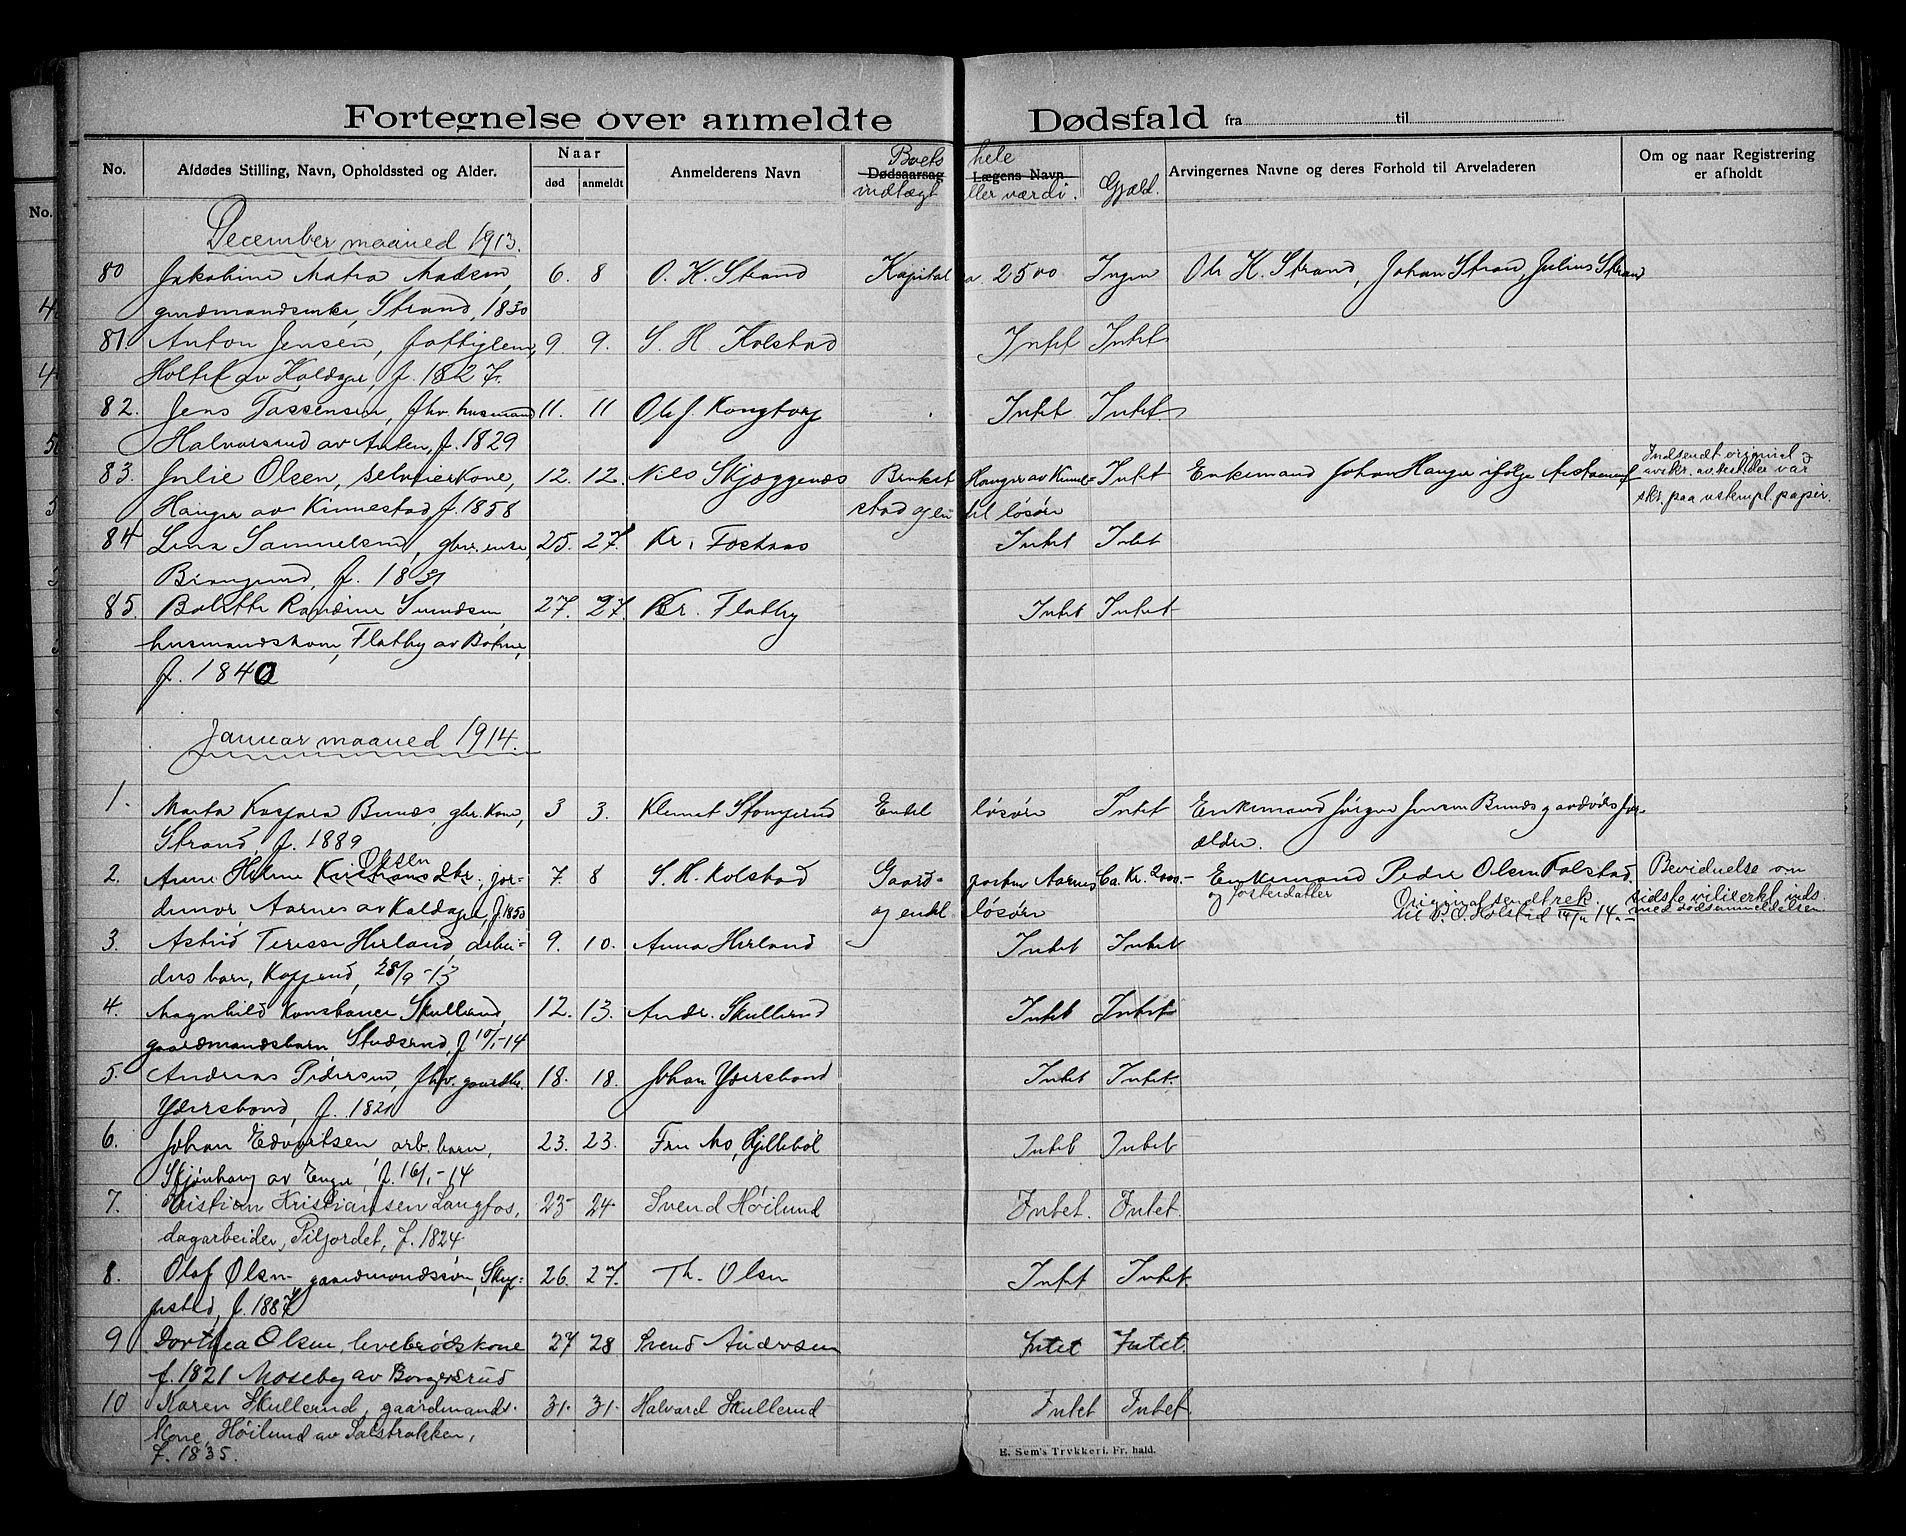 Fortegnelse over anmeldte Dødsfald fra til
No. Afdødes Stilling, Navn, Opholdssted og Alder. Naar død anmeldt Anmelderens Navn Dødsaarsag Lægens Navn Arvingernes Navne og deres Forhold til Arveladeren Om og naar Registrering er afholdt
Boets hele
indtægt eller værdi. Gjæld.
December maaned 1913.
80 Jakobine Matea Madsen, 6. 8 O. K. Strand Kapital 2500 Ingen Ole K. Strand, Johan Strand, Julius Strand
gaardmandsenke, Strand, 1830
81. Anton Jensen, fattiglem, 9. 9. S. H. Kolstad Intet Intet
Holtet av Kaldager, f. 1827.
82. Jens Tassensen, fhv. husmand 11. 11 Ole J. Kongtorp Intet Intet
Halvorsrud av Anten, f. 1829
83. Julie Olsen, selveierkone, 12. 12 Nils Skjæggenæs Bruket Hanger av Kinne- Intet Enkemand Johan Hanger ifølge
Hanger av Kinnestad, f. 1858 stad og en del løsøre
Indsendt original
skr. paa ustempl. papir.
84 Lina Samuelsen, gbr. enke, 25. 27. Kr. Fosteraas Intet Intet
f. 1831
85. Bolette Randine Gundsen, 27. 27. Kr. Flatby Intet Intet
husmandskone, Flatby av Bøhne,
f. 1840
Januar maaned 1914.
1. Marta Kaspara Bunes, gbr. kone, 3 3. Klemet Stomperud Endel løsøre Intet Enkemand Jørgen Jensen Bunes g avdødes for-
Strand, f. 1889 ældre.
Olsen
2. Anne Helene Kristiansdtr. jor- 7. 8 S. H. Kolstad Gaard- parten Aarnes Ca. Kr. 2000.- Enkemand Peder Olsen Kolstad. Bevidnelse om
og fosterdatter
demor, Aarnes av Kaldager, f. 1850 og endel løsøre
Original sendt rek. sidste vilie erkl. inds.
til P. O. Kolstad 14. med dødsanmeldelsen.
3. Astrid Teresse Herland, arbei- 9. 10. Anna Herland Intet Intet
ders barn, 28/9-13
4. Magnhild Konstance Skullerud, 12. 13. Andr. Skullerud Intet Intet
gaardmandsbarn Studsrud, f 10/1-14
5. Andreas Pedersen, fhv. gaardbr. 18. 18. Johan Ydersbond Intet Intet.
Ydersbond, f. 1821
6. Johan Edvartsen, arb. barn, 23. 23. Fru Mo, Kjellebøl Intet Intet
Skjønhaug av Enger, f. 16/1-14
7. Kristian Kristiansen Langfos, 23 24 Svend Høilund Intet. Intet.
dagarbeider, Piljordet, f. 1824
8. Olaf Olsen gaardmandssøn, Skrep- 26. 27. Th. Olsen Intet Intet.
perstad, f. 1887
9 Dorthea Olsen, levebrødskone 27 28 Svend Andersen Intet Intet.
f. 1821 Moseby av Borgersrud
10 Karen Skullerud, gaardmands- 31. 31. Halvard Skullerud Intet Intet.
kone, Høilund av Salsbrokken,
f. 1835.
E. Sem's Trykkeri. Fr. hald.